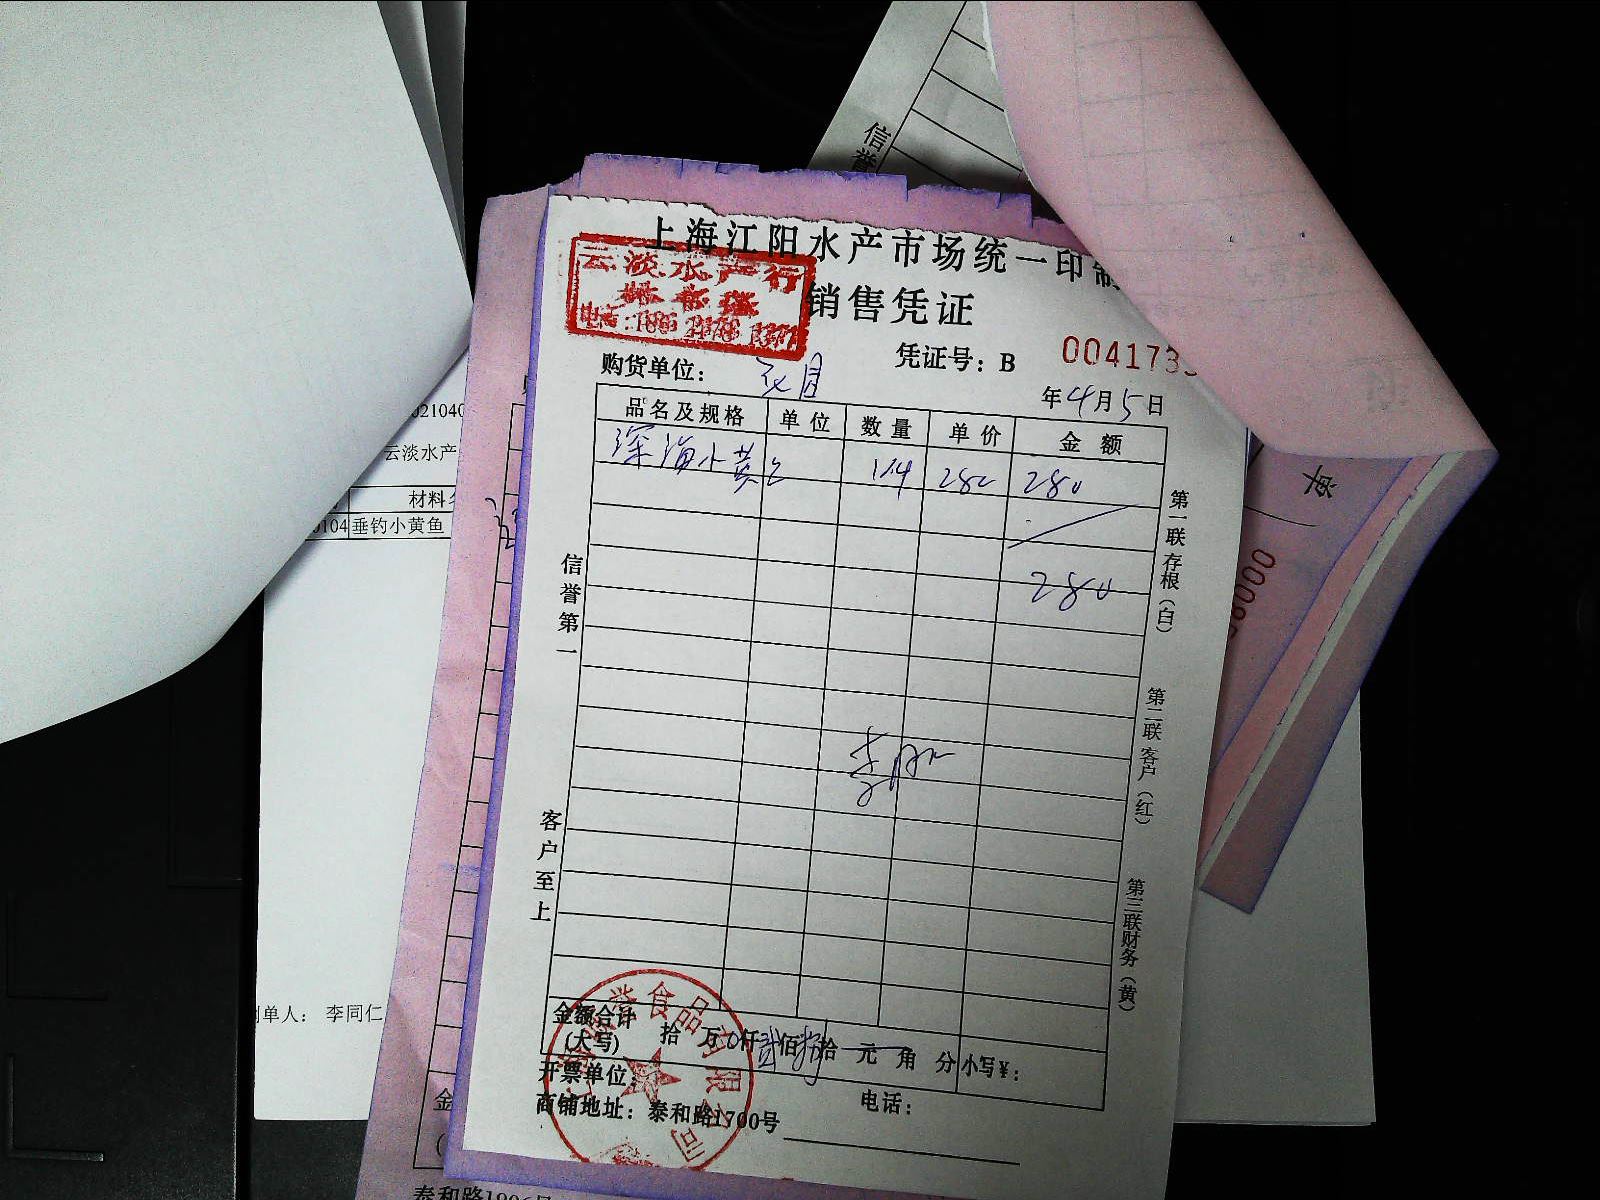 信誉
上海江阳水产市场统一印制
云淡水产行
销售凭证
凭证号：B 004173
购货单位：
年4月5日
品名及规格 单位 数量 单价 金额
深海小黄 280 280
280
信誉第一
客户至上
第一联存根（白）
第二联客户（红）
第三联财务（黄）
金额合计
（大写） 拾 万 0仟贰佰捌拾 元 角 分 小写¥：
开票单位：
电话：
商铺地址：泰和路1700号
食品有限公司
02104
云淡水产
材料
0104 垂钓小黄鱼
制单人： 李同仁
单
金
泰和路1906号